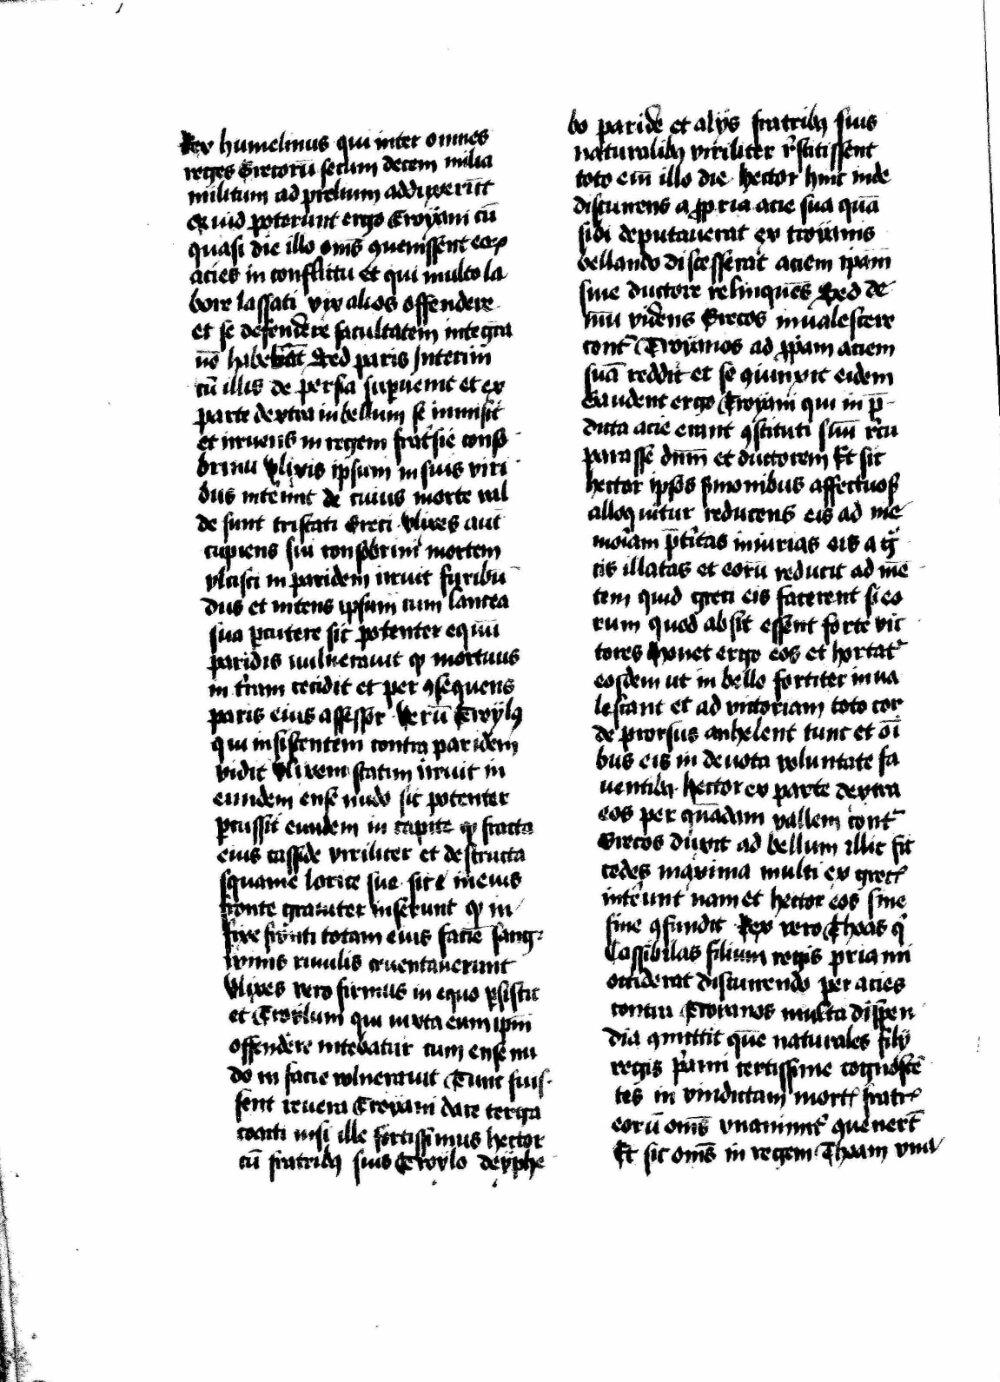 Rex humelinus qui inter omnes
reges Grecorū secum decem milia
militum ad prelium adduxerūt
Quid poterunt ergo Troyani cū
quasi die illo om̄s queuissent eoꝝ
acies in conflictu et qui multo la
bore lassati vix alios offendere
et se defendere facultatem integra
nō habebāt Sed paris Interim
cū illis de persia supuenit et ex
parte dextra in bellum se inmisit
et irruens in regem frat̄sie conso
brinū Vlixis ipsum in suis viri
bus interimit de cuius morte val
de sunt tristati Greci Vlixes aūt
cupiens sui consobrini mortem
vlcisci in paridem irruit furibū
dus et intens ipsum cum lancea
sua ꝑcutere sic potenter equū
paridis wlnerauit ꝙ mortuus
in t̄ram cecidit et per ꝯsequens
paris eius assessor Verū Troylꝰ
qui insistentem contra paridem
vidit Vlixem statim irruit in
eundem ense nudo sic potenter
ꝑcussit eundem in capite ꝙ fracta
eius casside viriliter et destructa
squame lorice sue sic eius
fronte grauiter inserunt ꝙ in
fixe fronti totam eius faciē sang
winis riuulis cruentauerunt
Vlixes vero firmus in equo ꝑsistit
et Troylum qui iuxta eum ipm̄
offendere nitebatur cum ense nu
do in facie wlnerauit Tunc fuis
sent reuera Troyani dare terga
coacti nisi ille fortissimus hector
cū fratribꝫ suis Troylo deyphe
bo paride et alijs fratribꝫ suis
naturalibꝫ viriliter r̄stitissent
toto eīm illo die hector hinc inde
discurrens a ꝓpria acie sua quā
sibi deputauerat ex troyanis
bellando discesserat aciem ipam̄
sine ductore relinquēs Sed de
mū videns Grecos inualescere
cont̄ Troyanos ad ꝓpam aciem
suā reddit et se ꝯiunxit eidem
Gaudent ergo Troyani qui in p̄
dicta acie erant ꝯstituti suū r̄cu
parasse dn̄m et ductorem Et sic
hector ip̄os s̄monibus affectuos̄
alloquitur reducens eis ad me
moriam p̄t̄itas iniurias eis a ḡ
cis illatas et eorū reducit ad mē
tem quid greci eis facerent si eo
rum quod absit essent forte vic
tores Monet ergo eos et hortat̄
eosdem ut in bello fortiter inua
lescant et ad victoriam toto cor
de prorsus anhelent tunc et oī
bus eis in deuota voluntate fa
uentibꝫ hector ex parte dextra
eos per quādam vallem cont̄
Grecos duxit ad bellum illic fit
cedes maxima multi ex grec̄
int̄eunt nam et hector eos sine
fine ꝯfundit Rex vero Thoas q̄
Cassibilas filium regis priami
occiderat discurrendo per acies
contra Troianos multa dispen
dia ꝯmittit quē naturales filij
regis p̄ami certissime cognoscē
tes in vindictam mort̄ fratr̄
eorū om̄s vnanimit̄ quenert̄
Et sic om̄s in regem Thoam vna